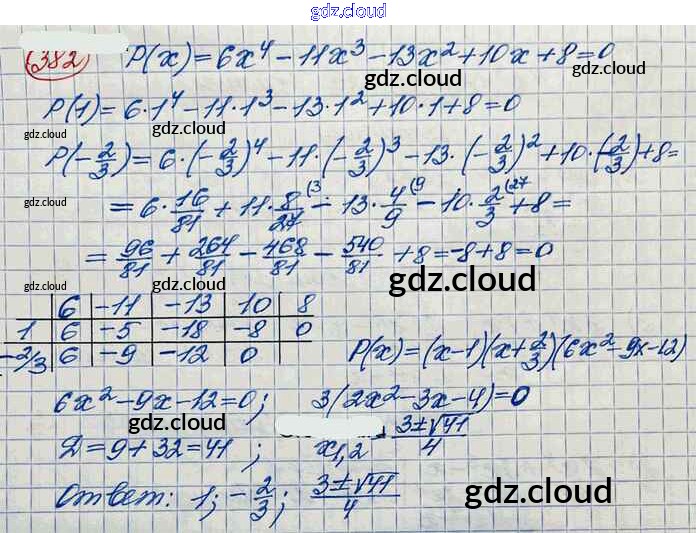 gdz.cloud
382 P(x)=6x⁴-11x³-13x²+10x+8=0
gdz.cloud
gdz.cloud
P(1)=6·1⁴-11·1³-13·1²+10·1+8=0
gdz.cloud
gdz.cloud
P(-2/3)=6·(-2/3)⁴-11·(-2/3)³-13·(-2/3)²+10·(-2/3)+8=
gdz.cloud
gdz.cloud
=6·16/81+11·8/27(3-13·4/9(9-10·2/3(27+8=
=96/81+264/81-468/81-540/81+8=-8+8=0
gdz.cloud
gdz.cloud
6 -11 -13 10 8
1 6 -5 -18 -8 0
gdz.cloud
-2/3 6 -9 -12 0 P(x)=(x-1)(x+2/3)(6x²-9x-12)
gdz.cloud
6x²-9x-12=0; 3(2x²-3x-4)=0
gdz.cloud
gdz.cloud
Д=9+32=41; x1,2 3±√41/4
gdz.cloud
Ответ: 1; -2/3; 3±√41/4
gdz.cloud
gdz.cloud